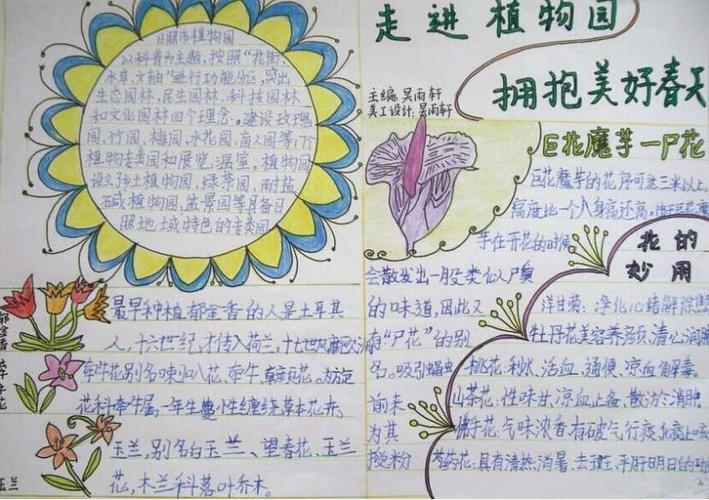 走进植物园
拥抱美好春天
主编:吴雨轩
美工设计:吴雨轩
日照市植物园
以科普为主题,按照“花街、
水岸、文轴”进行功能分区,突出
生态园林、民生园林、科技园林
和文化园林四个理念。建设玫瑰
园、竹园、梅园、水花园、盲人园等17个
植物专类园和展览温室。植物园
设立乡土植物园、绿茶园、耐盐
碱植物园、盆景园等具备日
照地域特色的专类园
郁金香
最早种植郁金香的人是土耳其
人,十六世纪,才传入荷兰,十七世纪
牵牛花
牵牛花别名喇叭花、牵牛、朝颜花。为旋
花科牵牛属一年生蔓性缠绕草本花卉。
玉兰
玉兰,别名白玉兰、望春花、玉兰
花,木兰科落叶乔木。
巨花魔芋一尸花
巨花魔芋的花序可达三米以上,
高度比一个人身高还高。由于巨花魔
芋在开花的时候
会散发出一股类似尸臭
的味道,因此又
有“尸花”的别
名。吸引蝇虫
前来
为其
授粉
花的
妙用
洋甘菊:净化心绪解除
牡丹花美容养颜,清心润肺
桃花:利水、活血、通便、凉血解毒。
山茶花:性味甘、凉血止血、散瘀消肿
佛手花:气味浓香有破气行痰、止
芍药花:具有清热、消暑、去斑、平肝明目的功